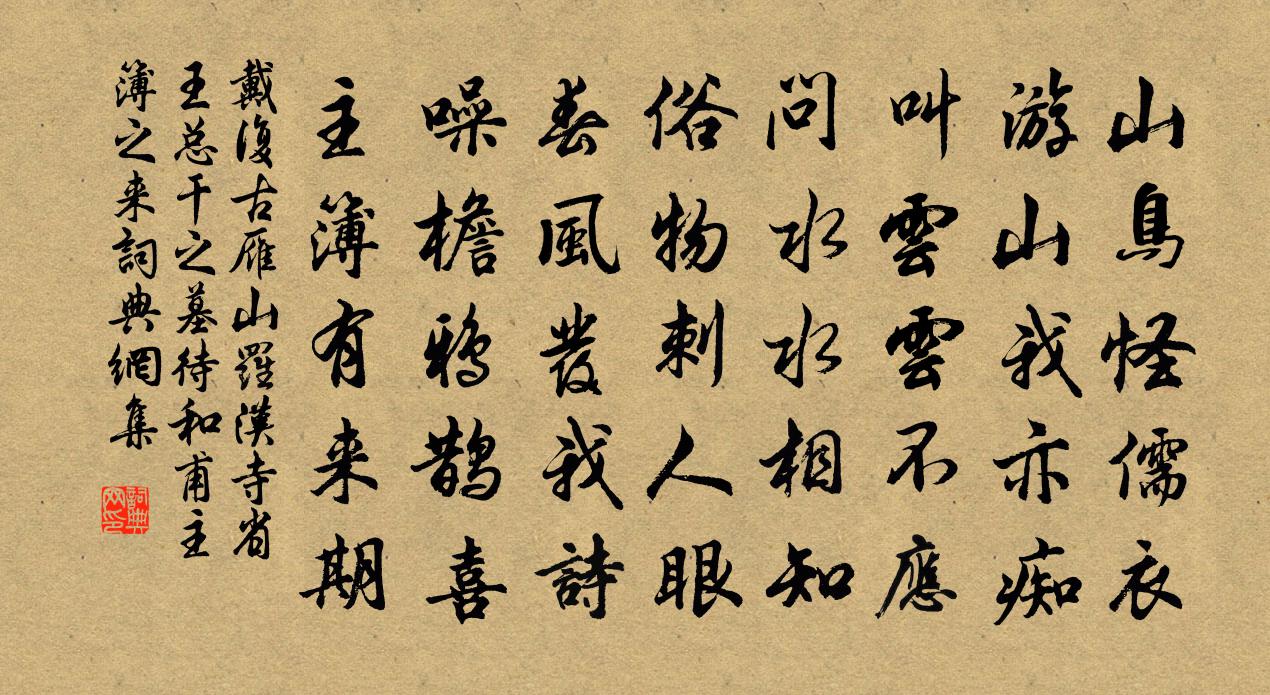 山鳥怪儒衣
游山我亦痴
叫雲雲不應
問水水相知
俗物刺人眼
春風發我詩
噪檐鴉鵲喜
主簿有来期
戴復古雁山羅漢寺省
王总干之墓待和甫主
簿之来詞典網集
詞典网印